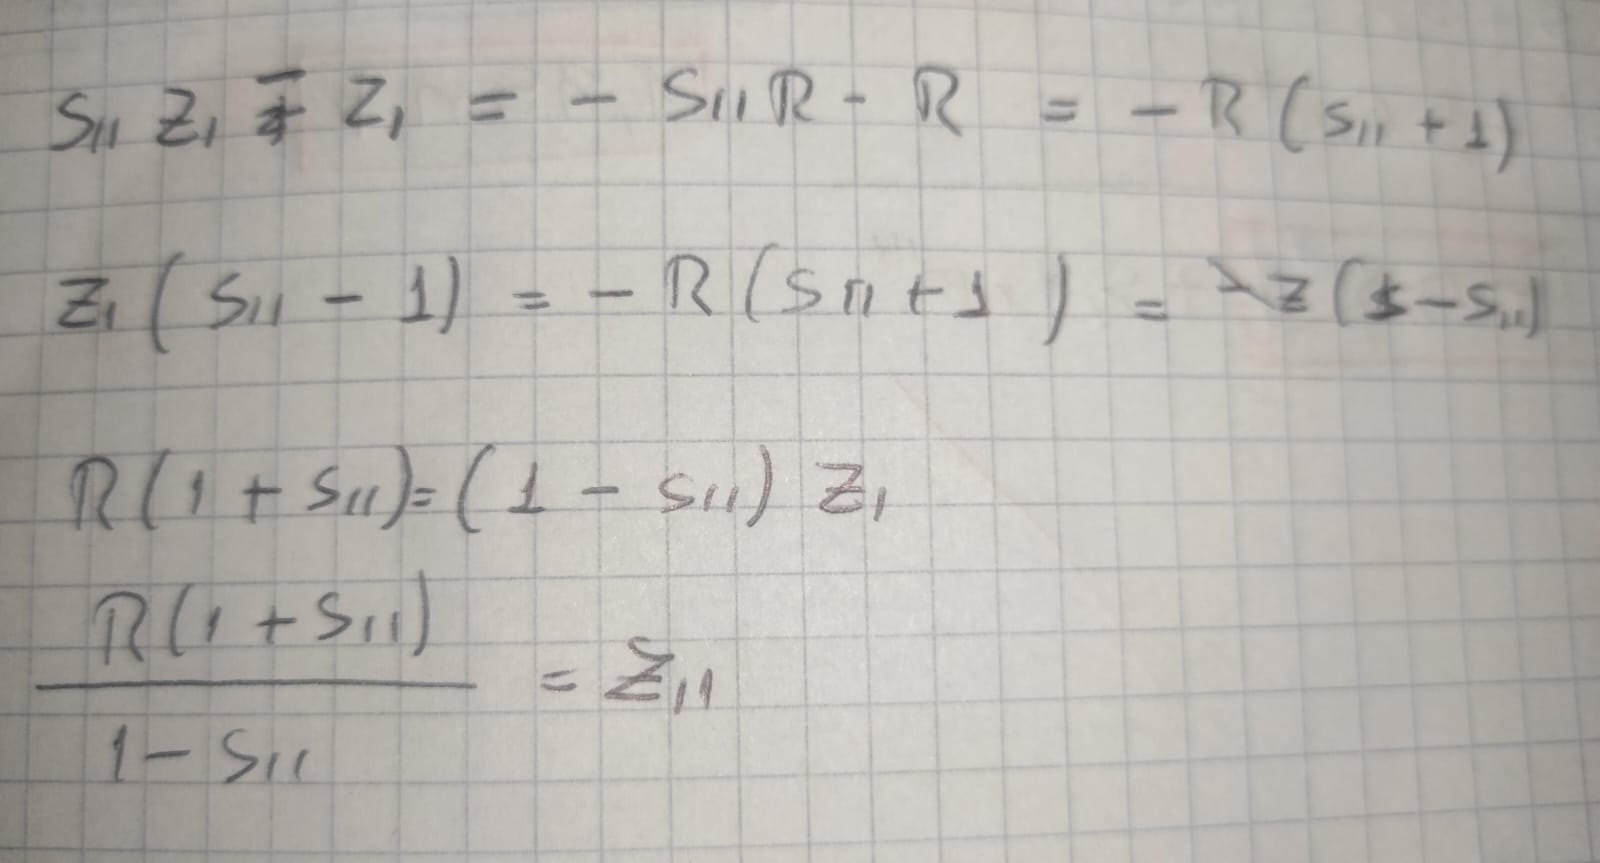 S₁₁ Z₁ - Z₁ = - S₁₁ R - R = - R ( S₁₁ + 1)
Z₁ ( S₁₁ - 1) = - R ( S₁₁ + 1 ) = - Z ( 1 - S₁₁)
R ( 1 + S₁₁) = ( 1 - S₁₁) Z₁
R ( 1 + S₁₁)
= Z₁₁
1 - S₁₁